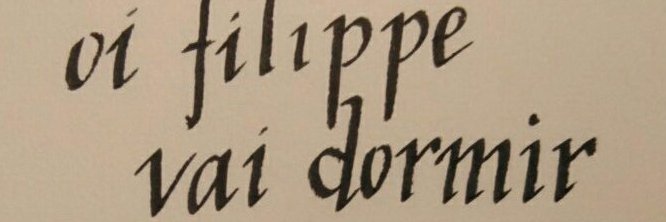 oi filippe
vai dormir